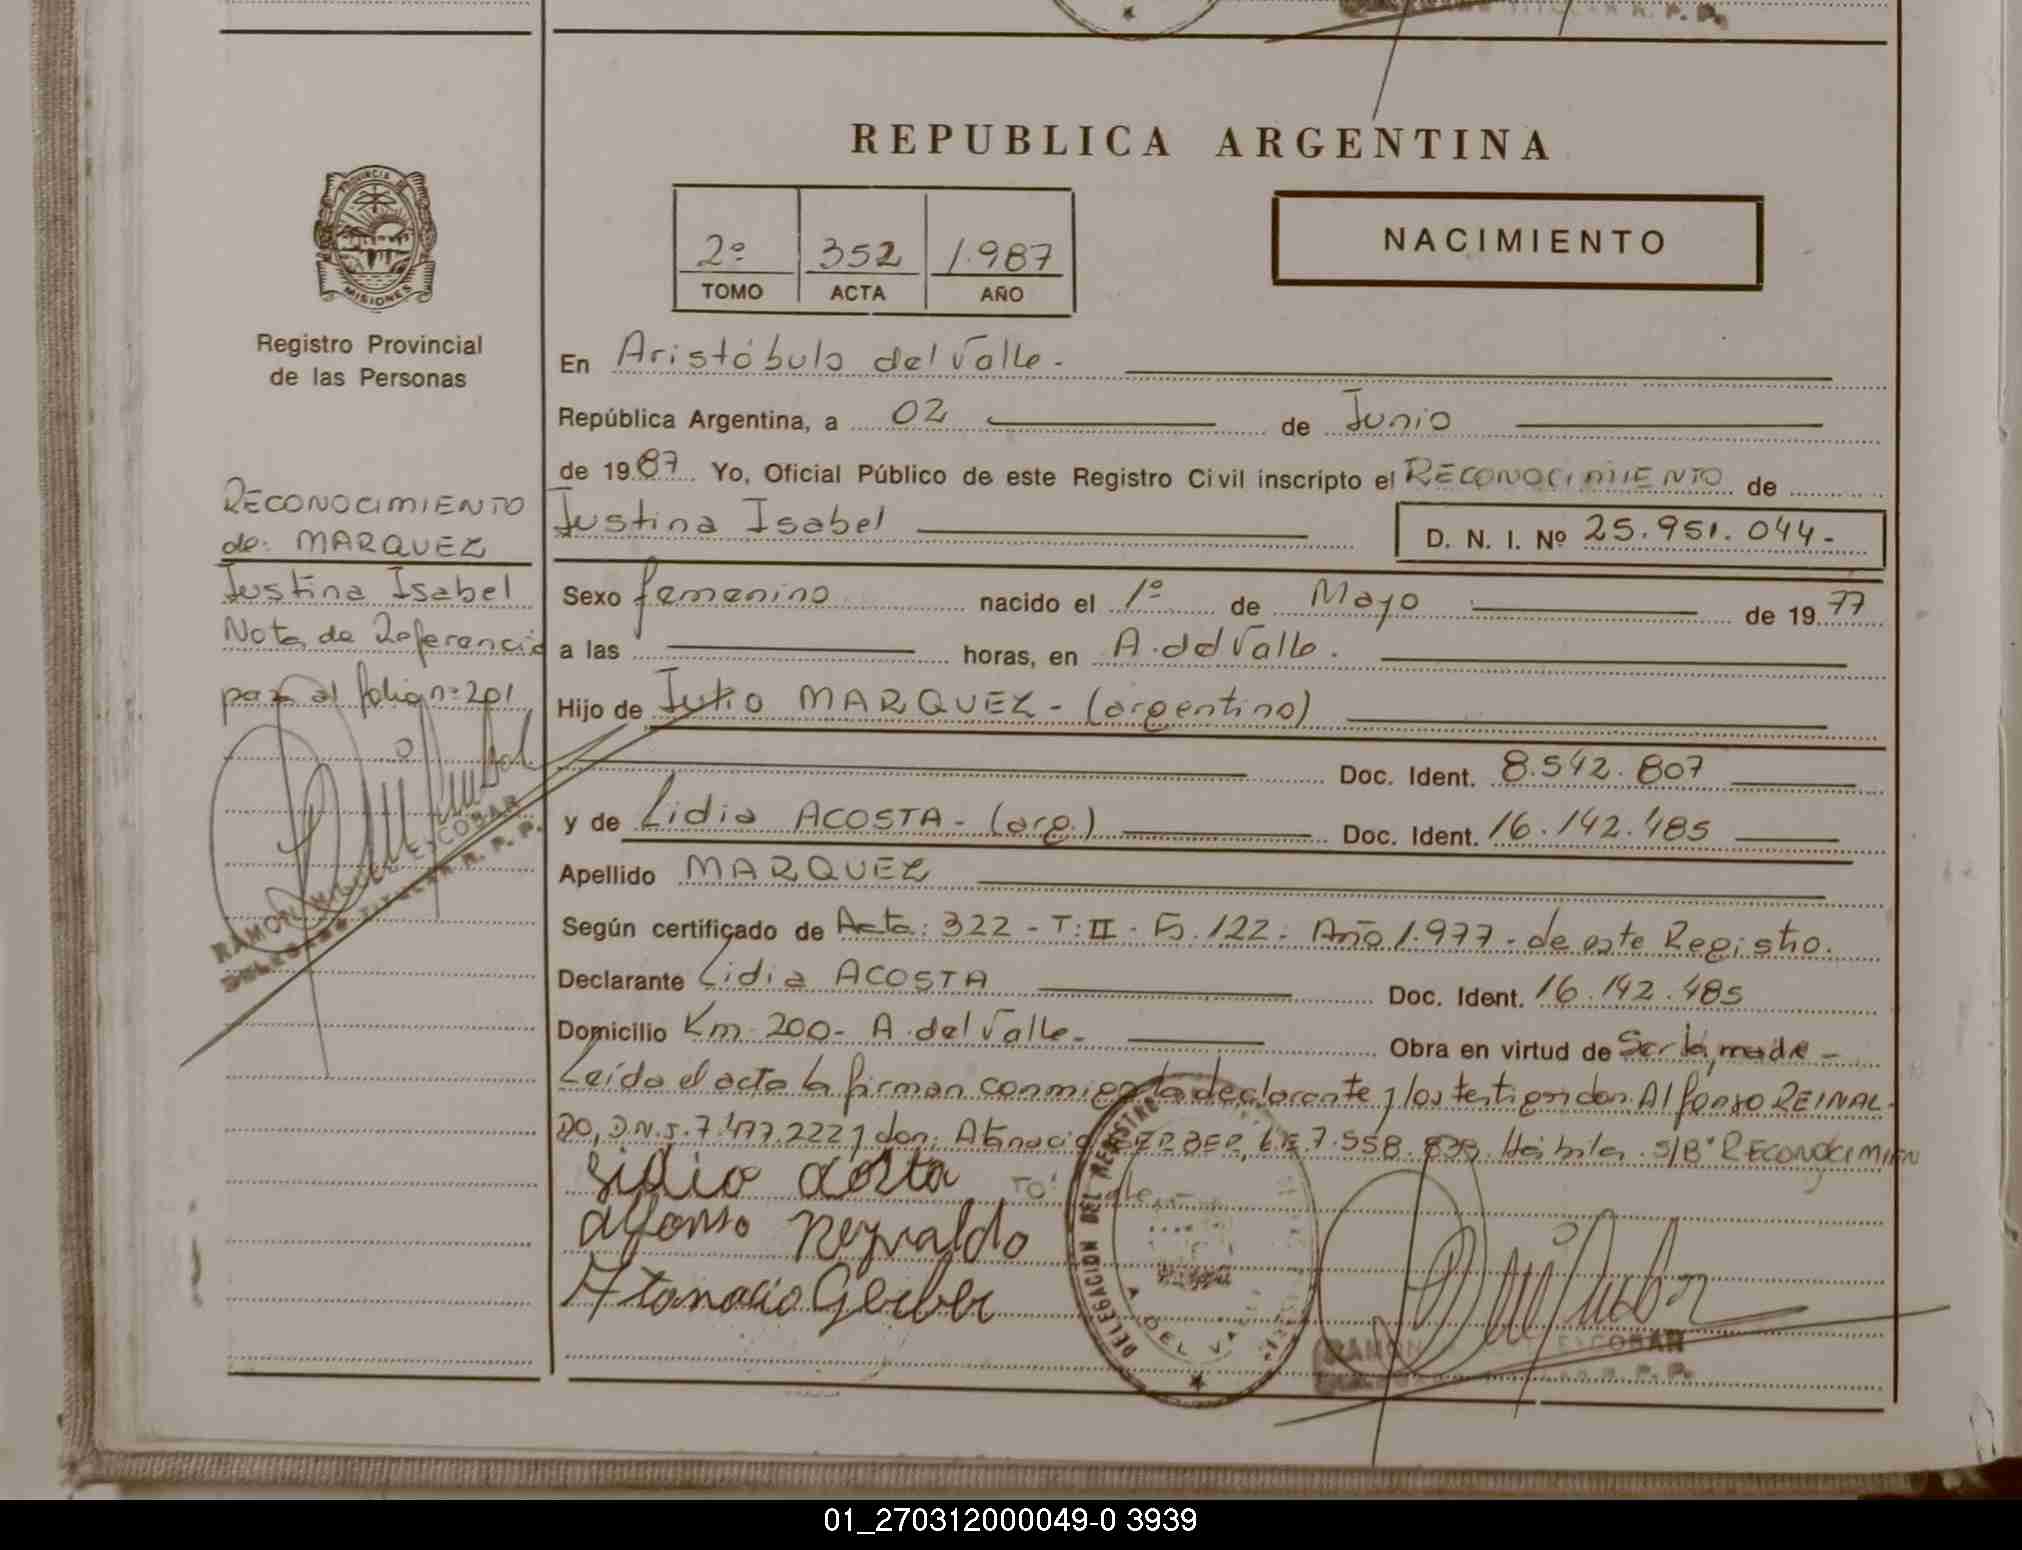 REPUBLICA ARGENTINA
PROVINCIA DE
MISIONES
Registro Provincial
de las Personas
2º 352 1.987
TOMO ACTA AÑO
NACIMIENTO
En Aristóbulo del Valle.-
República Argentina, a 02 de Junio
de 1987 Yo, Oficial Público de este Registro Civil inscripto el RECONOCIMIENTO de
Justina Isabel D. N. I. Nº 25.951.044-
Sexo femenino nacido el 1º de Mayo de 1977
a las horas, en A. del Valle.
Hijo de Julio MARQUEZ - (argentino)
Doc. Ident. 8.542.807
y de Lidia ACOSTA - (arg.) Doc. Ident. 16.142.485
Apellido MARQUEZ
Según certificado de Acta: 322 - T: II - F. 122 - Año 1.977 - de este Registro.
Declarante Lidia ACOSTA Doc. Ident. 16.142.485
Domicilio Km. 200- A. del Valle- Obra en virtud de Ser la madre -
Leída el acta la firman conmigo la declarante y los testigos don: Alfonso REINAL-
DO, D.N.I. 7.477.222 y don: Atanacio GERBER, L.E. 7.558. Hábiles. S/Bº RECONOCIMIEN
TO: Vale
Lidia Acosta
Alfonso Reynaldo
Atanacio Gerber
DELEGACION DEL REGISTRO
A. DEL VALLE
RAMON ESCOBAR
R. P. P.
RECONOCIMIENTO
de: MARQUEZ
Justina Isabel
Nota de Referencia
pasa al folio nº 201
RAMON MIGUEL ESCOBAR
DELEGADO TITULAR R. P. P.
TITULAR R. P. P.
01_270312000049-0 3939